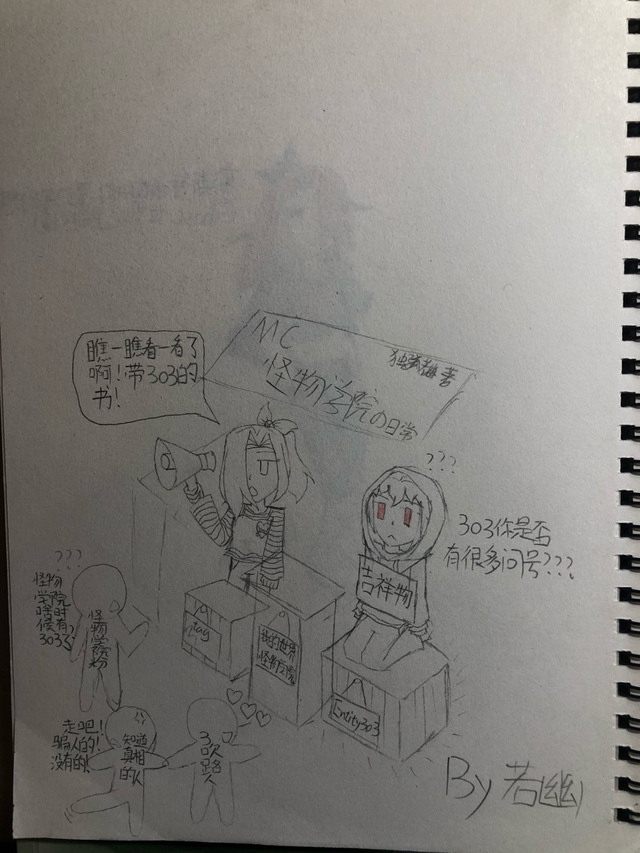 MC
怪物学院の日常
瞧一瞧看一看了
啊！带303的
书！
???
303你是否
有很多问号???
吉祥物
???
怪物
学院
啥时
候有
303了?
怪物学院粉
tag
我的世界
Entity303
走吧！
骗人的！
没有的！
知道
真相
的人
303路人
By 若幽